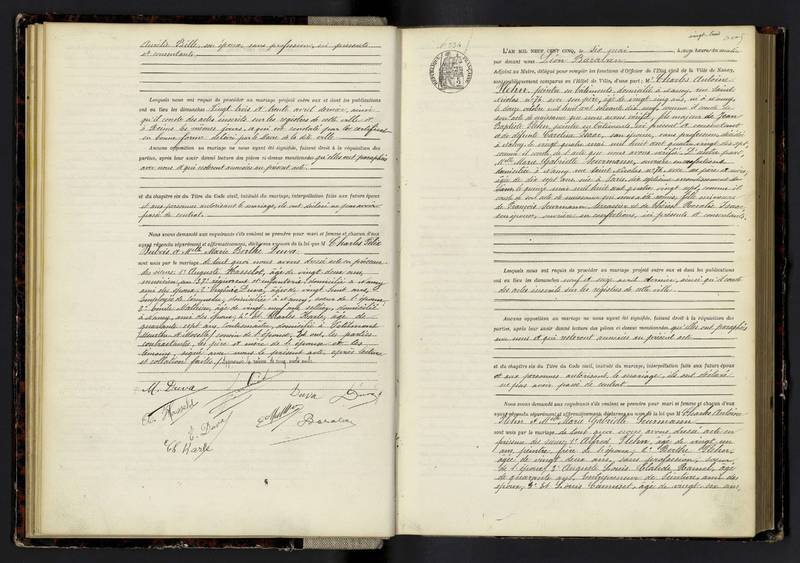 Aurélie Bille, son épouse, sans profession, ici présents
et consentants.
Lesquels nous ont requis de procéder au mariage projeté entre eux et dont les publications
ont eu lieu les dimanches vingt trois et trente avril dernier, ainsi
qu'il conste des actes inscrits sur les registres de cette ville et
à les mêmes jours, ce qui est constaté par le certificat
en bonne forme délivré par le maire de la dite ville
Aucune opposition au mariage ne nous ayant été signifiée, faisant droit à la réquisition des
parties, après leur avoir donné lecture des pièces ci-dessus mentionnées qu'elles ont paraphées
avec nous et qui resteront annexées au présent acte.
et du chapitre six du Titre du Code civil, intitulé du mariage, interpellation faite aux futurs époux
et aux personnes autorisant le mariage, ils ont déclaré ne pas avoir
passé de contrat.
Nous avons demandé aux requérants s'ils veulent se prendre pour mari et femme et chacun d'eux
ayant répondu séparément et affirmativement, déclarons au nom de la loi que M Charles Félix
Dubois et Mlle Marie Berthe Duva
sont unis par le mariage de tout quoi nous avons dressé acte en présence
des sieurs 1° Auguste Hasselot, âgé de vingt deux ans,
musicien au 37e régiment d'infanterie, domicilié à Nancy
ami des époux; 2° Duva, âgée de vingt huit ans,
employée de commerce, domiciliée à Nancy, sœur de l'épouse,
3° Mathieu, âgé de vingt neuf ans, sellier, domicilié
à Nancy, ami des époux; 4° et Charles Harlé, âgé de
quarante sept ans, contremaître, domicilié à
(Meurthe et Moselle), cousin de l'épouse. Et ont, les parties
contractantes, les père et mère de l'épouse et les
témoins, signé avec nous le présent acte, après lecture
et collation faites.
M. Duva
Duva
Duva
E. Duva
Baralan
Ch. Harlé
N° 334
RÉPUBLIQUE FRANÇAISE
L'AN MIL NEUF CENT CINQ, le six mai à onze heures du matin
par devant nous Léon Baralan
Adjoint au Maire, délégué pour remplir les fonctions d'Officier de l'État civil de la Ville de Nancy,
sont publiquement comparus en l'Hôtel de Ville, d'une part; M. Charles Antoine
Klehr, peintre en bâtiments, domicilié à Nancy, rue Saint
Nicolas n° 72 avec son père, âgé de vingt cinq ans, né à Nancy
le octobre mil huit cent soixante dix neuf comme il conste de
son acte de naissance que nous avons vérifié, fils majeur de Jean
Baptiste Klehr, peintre en bâtiments, ici présent et consentant
et de défunte Caroline son épouse, sans profession, décédée
à Nancy, le vingt quatre mai mil huit cent quatre vingt dix sept,
comme il conste de l'acte que nous avons vérifié. D'autre part,
Mlle Marie Gabrielle Seurmann, ouvrière en confections,
domiciliée à Nancy rue Saint Nicolas n° 72, avec ses père et mère,
âgée de dix sept ans, née à Paris, dixième arrondissement de la
Seine, le quinze mai mil huit cent quatre vingt sept, comme il
conste de son acte de naissance qui nous a été remis, fille mineure
de François Seurmann, terrassier et de Rosalie
son épouse, ouvrière en confections, ici présents et consentants.
Lesquels nous ont requis de procéder au mariage projeté entre eux et dont les publications
ont eu lieu les dimanches neuf et seize avril dernier, ainsi qu'il conste
des actes inscrits sur les registres de cette ville.
Aucune opposition au mariage ne nous ayant été signifiée, faisant droit à la réquisition des
parties, après leur avoir donné lecture des pièces ci-dessus mentionnées qu'elles ont paraphées
avec nous et qui resteront annexées au présent acte
et du chapitre six du Titre du Code civil, intitulé du mariage, interpellation faite aux futurs époux
et aux personnes autorisant le mariage, ils ont déclaré
ne pas avoir passé de contrat
Nous avons demandé aux requérants s'ils veulent se prendre pour mari et femme et chacun d'eux
ayant répondu séparément et affirmativement, déclarons au nom de la loi que M Charles Antoine
Klehr et Mlle Marie Gabrielle Seurmann
sont unis par le mariage de tout quoi nous avons dressé acte en
présence des sieurs 1° Alfred Klehr, âgé de vingt un
ans, peintre, frère de l'époux; 2° Berthe Klehr,
âgée de vingt deux ans, sans profession, sœur
de l'époux; 3° Auguste Louis Hamel, âgé
de quarante ans, entrepreneur de peinture, ami des
époux, 4° et Louis Camuset, âgé de vingt six ans,